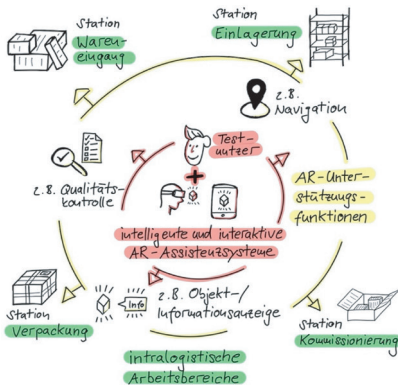 Station
Waren-
eingang
Station
Einlagerung
z.B.
Navigation
Test-
nutzer
z.B. Qualitäts-
kontrolle
AR-Unter-
stützungs-
funktionen
intelligente und interaktive
AR-Assistenzsysteme
Station
Verpackung
Info
z.B. Objekt-/
Informationsanzeige
Station
Kommissionierung
intralogistische
Arbeitsbereiche